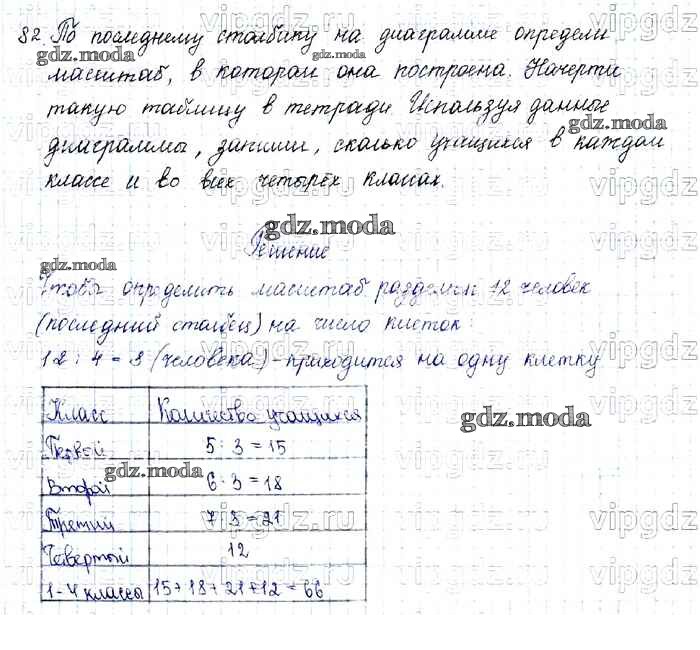 82. По последнему столбику на диаграмме определи
масштаб, в котором она построена. Начерти
такую таблицу в тетради. Используя данные
диаграммы, запиши, сколько учащихся в каждом
классе и во всех четырёх классах.
Решение
Чтобы определить масштаб разделим 12 человек
(последний столбец) на число клеток:
12 : 4 = 3 (человека) - приходится на одну клетку
Класс Количество учащихся
Первый 5 · 3 = 15
Второй 6 · 3 = 18
Третий 7 · 3 = 21
Четвертый 12
1-4 классы 15+18+21+12 = 66
gdz.moda
gdz.moda
gdz.moda
gdz.moda
gdz.moda
gdz.moda
vipgdz.ru
vipgdz.ru
vipgdz.ru
vipgdz.ru
vipgdz
vipgdz
vipgdz
vipgdz